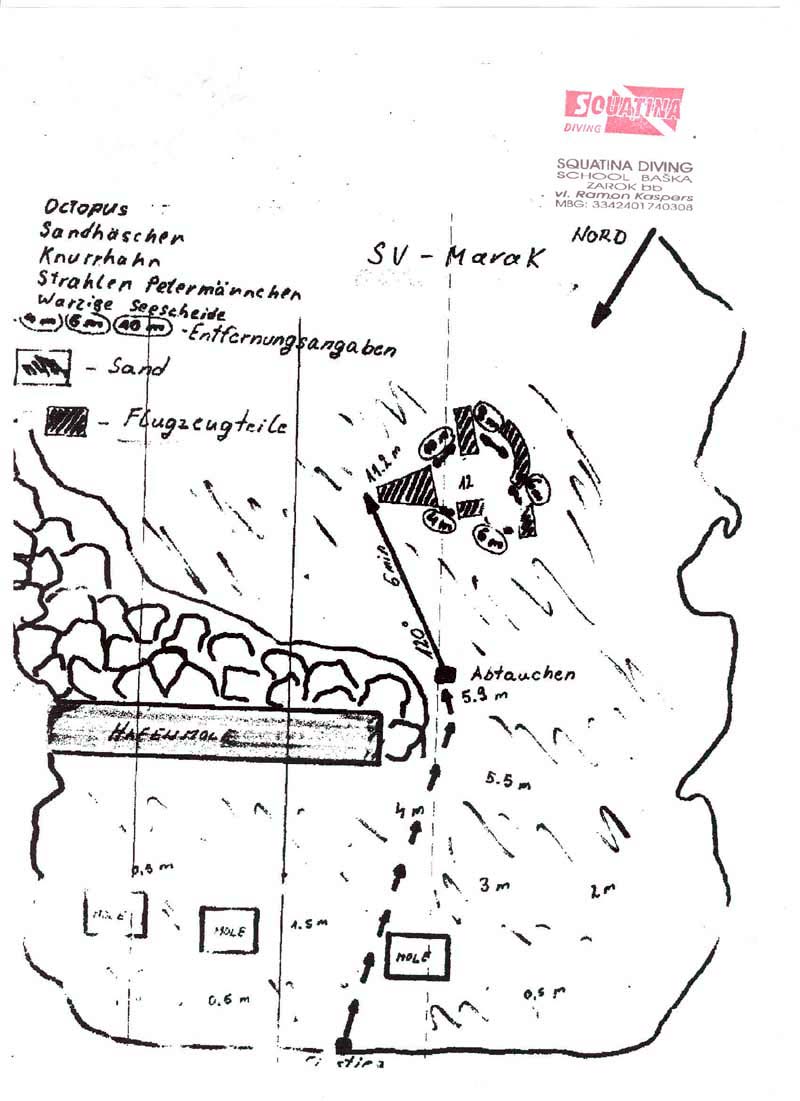 SQUATINA
DIVING
SQUATINA DIVING
SCHOOL BAŠKA
ZAROK bb
vl. Ramon Kaspers
MBG: 3342401740308
Octopus
Sandhäschen
Knurrhahn
Strahlen Petermännchen
Warzige Seescheide
4 m 6 m 10 m - Entfernungsangaben
- Sand
- Flugzeugteile
SV - Marak
NORD
11.2 m
10 m
12
4 m
6 m
6 min
120°
Abtauchen
5.9 m
HAFENMOLE
5.5 m
4 m
3 m
2 m
0,5 m
MOLE
MOLE
1.5 m
MOLE
0,5 m